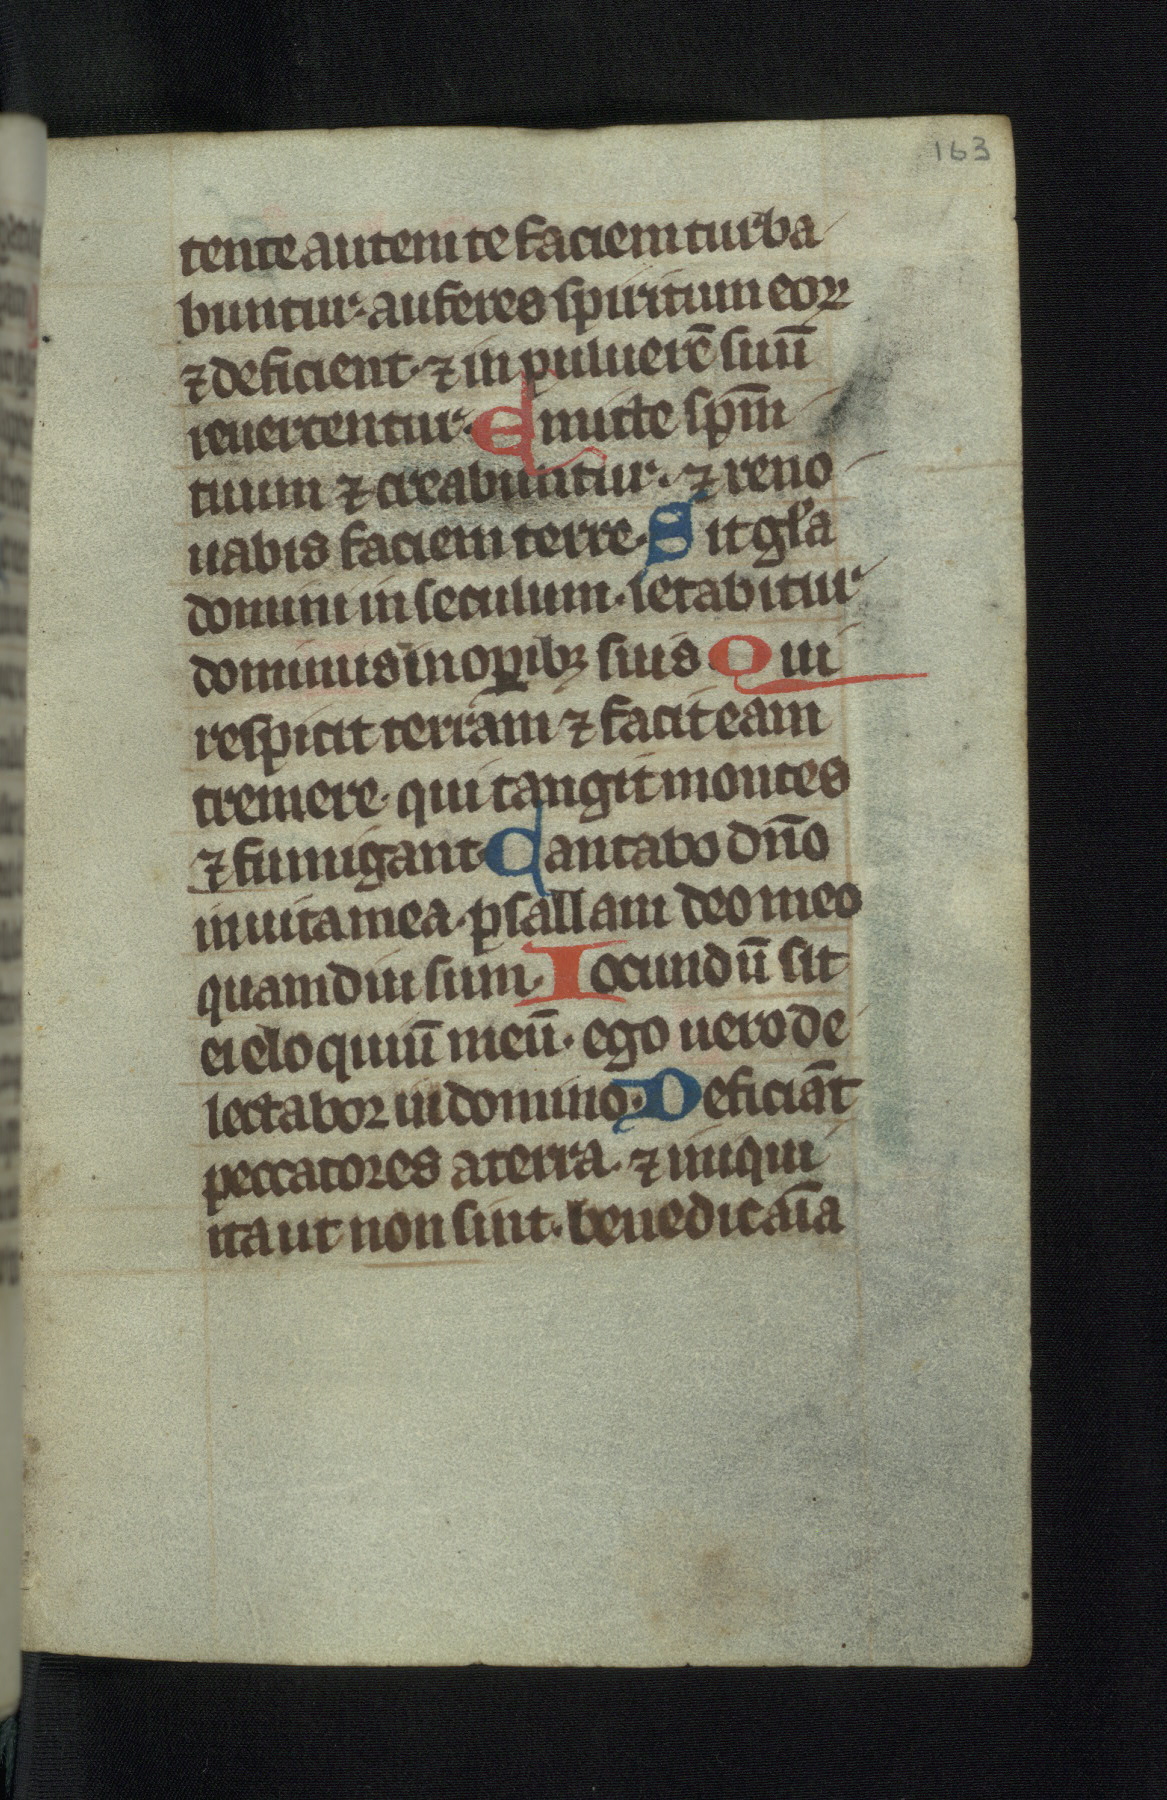 163
tente autem te faciem turba
buntur. auferes spiritum eoꝝ
⁊ deficient. ⁊ in puluerē suū
reuertentur. Emitte sp̄m
tuum ⁊ creabuntur. ⁊ reno
uabis faciem terre. Sit gl̄a
domini in seculum. letabitur
dominus in oꝑibꝫ suis Qui
respicit terram ⁊ facit eam
tremere. qui tangit montes
⁊ fumigant. Cantabo dn̄o
in uita mea. psallam deo meo
quamdiu sum. Iocundū sit
ei eloquiū meū. ego uero de
lectabor in domino. Deficiāt
peccatores a terra. ⁊ iniqui
ita ut non sint. benedic aīa